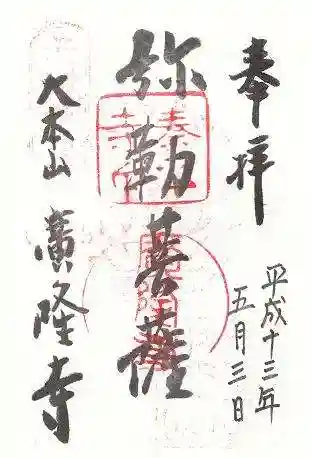 奉拝
平成十三年
五月三日
弥勒菩薩
大本山
廣隆寺